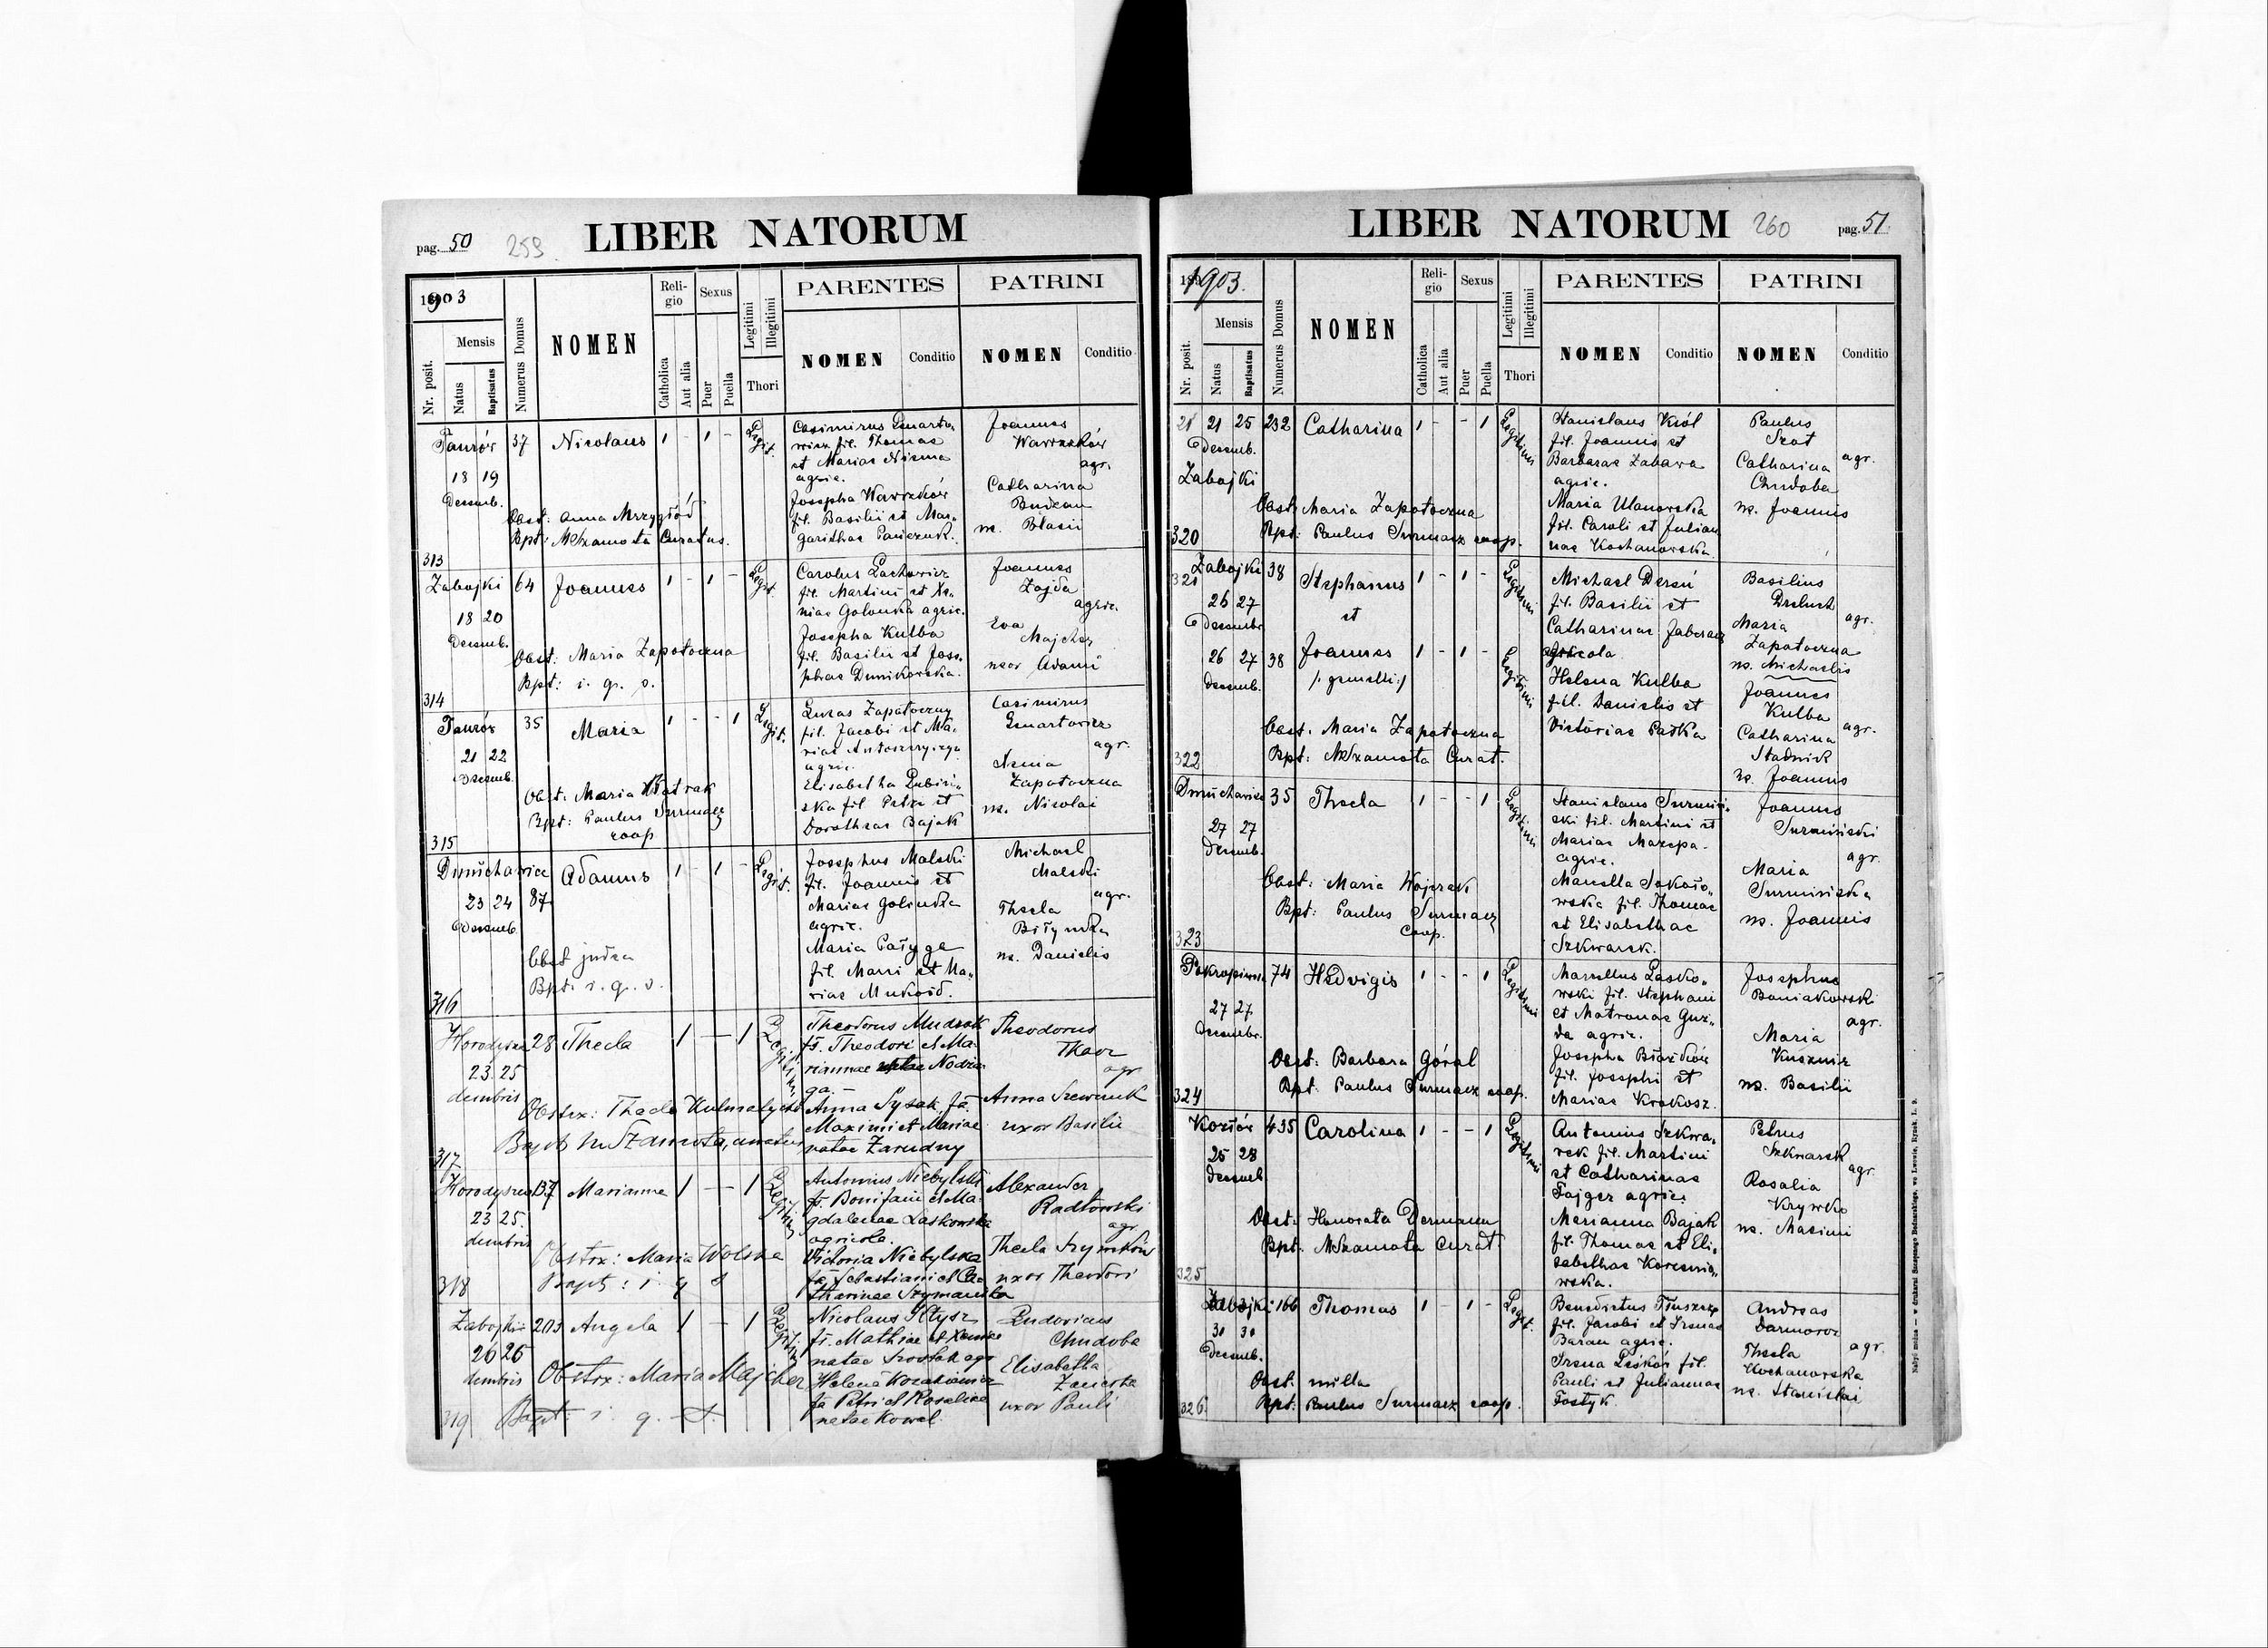 pag. 50 259. LIBER NATORUM
1903
Nr. posit.
Mensis
Natus
Baptisatus
Numerus Domus
NOMEN
Religio
Catholica
Aut alia
Sexus
Puer
Puella
Legitimi
Illegitimi
Thori
PARENTES
NOMEN Conditio
PATRINI
NOMEN Conditio
Taurów 37 Nicolaus 1 - 1 - Legit.
18 19
Decemb.
Obst: Anna Mrzygłód
Bpt: MSzamota Curatus.
313
Casimirus Gmarto-
wicz fil. Thomae
et Mariae Nizma
agric.
Josepha Wawrzków
fil. Basilii et Mar-
garithae Panczuk.
Joannes
Wawrzków
agr.
Catharina
Budzan
ux. Blasii
Zabojki 64 Joannes 1 - 1 - Legit.
18 20
Decemb.
Obst: Maria Zapotoczna
Bpt: i. q. s.
314
Carolus Lachowicz
fil. Martini et Xe-
niae Golonka agric.
Josepha Kulba
fil. Basilii et Jose-
phae Dunikowska.
Joannes
Zajda
agric.
Eva
Majcher
uxor Adami
Taurów 35 Maria 1 - - 1 Legit.
21 22
Decemb.
Obst: Maria Watrak
Bpt: Paulus Surmacz
coop
315
Lucas Zapotoczny
fil. Jacobi et Ma-
riae
agric.
Elisabetha Lubiń-
ska fil. Petri et
Dorotheae Bajak
Casimirus
Gmartowicz
agr.
Anna
Zapotoczna
ux. Nicolai
Dmuchawice Adamus 1 - 1 - Legit.
23 24 87
Decemb.
Obst judea
Bpt: i. q. s.
316
Josephus Malski
fil. Joannis et
Mariae Golinka
agric.
Maria Pałyga
fil. Marci et Ma-
riae Mukoid.
Michael
Malski
agr.
Thecla
Biłynska
ux. Danielis
Horodyszcze 28 Thecla 1 — 1 Legitimi
23 25
dcmbris
Obstrx: Thecla
Bapt MSzamota, curatus
317
Theodorus Mudrak
fs. Theodori et Ma-
riannae natae Nodzia-
ga
Anna Sysak fa.
Maximi et Mariae
natae Zarudny
Theodorus
Tkacz
agr
Anna Szewczuk
uxor Basilii
Horodyszcze 137 Marianna 1 — 1 Legitimi
23 25.
dcmbris
Obstrx: Maria Wolska
Bapt: i q s
318
Antonius Niebylski
fs. Bonifacii et Ma-
gdalenae Laskowska
agricola.
Victoria Niebylska
fa Sebastiani et Ca-
tharinae Szymańska
Alexander
Radłowski
agr
Thecla Szymków
uxor Theodori
Zabojki 203 Angela 1 — 1 Legitimi
26 26
dcmbris Obstrx: Maria Majcher
319 Bapt: i. q. s.
Nicolaus Hysz
fs. Mathiae et Xeniae
natae agr
Helena
fa Petri et Rosaliae
natae Kowal.
Ludovicus
Chudoba
Elisabetha
uxor Pauli
LIBER NATORUM 260 pag. 51.
1903.
Nr. posit.
Mensis
Natus
Baptisatus
Numerus Domus
NOMEN
Religio
Catholica
Aut alia
Sexus
Puer
Puella
Legitimi
Illegitimi
Thori
PARENTES
NOMEN Conditio
PATRINI
NOMEN Conditio
21 21 25 232 Catharina 1 - - 1 Legitimi
Decemb.
Zabojki
Obst: Maria Zapotoczna
Bpt: Paulus Surmacz coop.
320
Stanislaus Król
fil. Joannis et
Barbarae Zabawa
agric.
Maria Ulanowska
fil. Caroli et Julian
nae Kochanowska.
Paulus
Szot
agr.
Catharina
Chudoba
ux. Joannis
Zabojki 38 Stephanus 1 - 1 - Legitimi
321
26 27
Decembr. et
26 27 38 Joannes 1 - 1 - Legitimi
Decemb. /: gemelli :/
Obst. Maria Zapotoczna
Bpt: MSzamota Curat.
322
Michael Dereń
fil. Basilii et
Catharinae
agricola
Helena Kulba
fil. Danielis et
Victoriae Patka
Basilius
agr.
Maria
Zapotoczna
ux. Michaelis
Joannes
Kulba
agr.
Catharina
Stadnick
ux. Joannis
Dmuchawice 35 Thecla 1 - - 1 Legitimi
27 27
Decemb.
Obst: Maria Wojczak
Bpt: Paulus Surmacz
Coop.
323
Stanislaus Surmiń-
ski fil. Martini et
Mariae Mazepa.
agric.
Marcella Sokoło-
wska fil. Thomae
et Elisabethae
Szkwarek.
Joannes
Surmiński
agr.
Maria
Surmińska
ux. Joannis
Pokropiwna 74 Hedvigis 1 - - 1 Legitimi
27 27
Decembr.
Obst: Barbara Góral
Bpt: Paulus Surmacz coop.
324
Marcellus Lasko-
wski fil. Stephani
et Matronae Guz-
da agric.
Josepha Błazków
fil. Josephi et
Mariae Krokosz.
Josephus
Boniakowski
agr.
Maria
Kusznir
ux. Basilii
Kozłów 435 Carolina 1 - - 1 Legitimi
25 28
Decemb
Obst: Honorata Dermann
Bpt: MSzamota Curat.
325
Antonius Szkwa-
rek fil. Martini
et Catharinae
Fajger agric.
Marianna Bajak
fil. Thomae et Eli-
sabethae
wska.
Petrus
Szkwarek
agr.
Rosalia
Krywko
ux. Maximi
Zabojki 166 Thomas 1 - 1 - Legit.
30 30
Decemb.
Obst. nulla
Bpt: Paulus Surmacz coop.
326
Benedictus Tłuszcz
fil. Jacobi et Irenae
Baran agric.
Irena Leśków fil.
Pauli et Juliannae
Fostyk.
Andreas
Darmoroz
agr.
Thecla
Kochanowska
ux. Stanislai
Nakył można — w drukarni Szczęsnego Bednarskiego, we Lwowie, Rynek, L. 9.